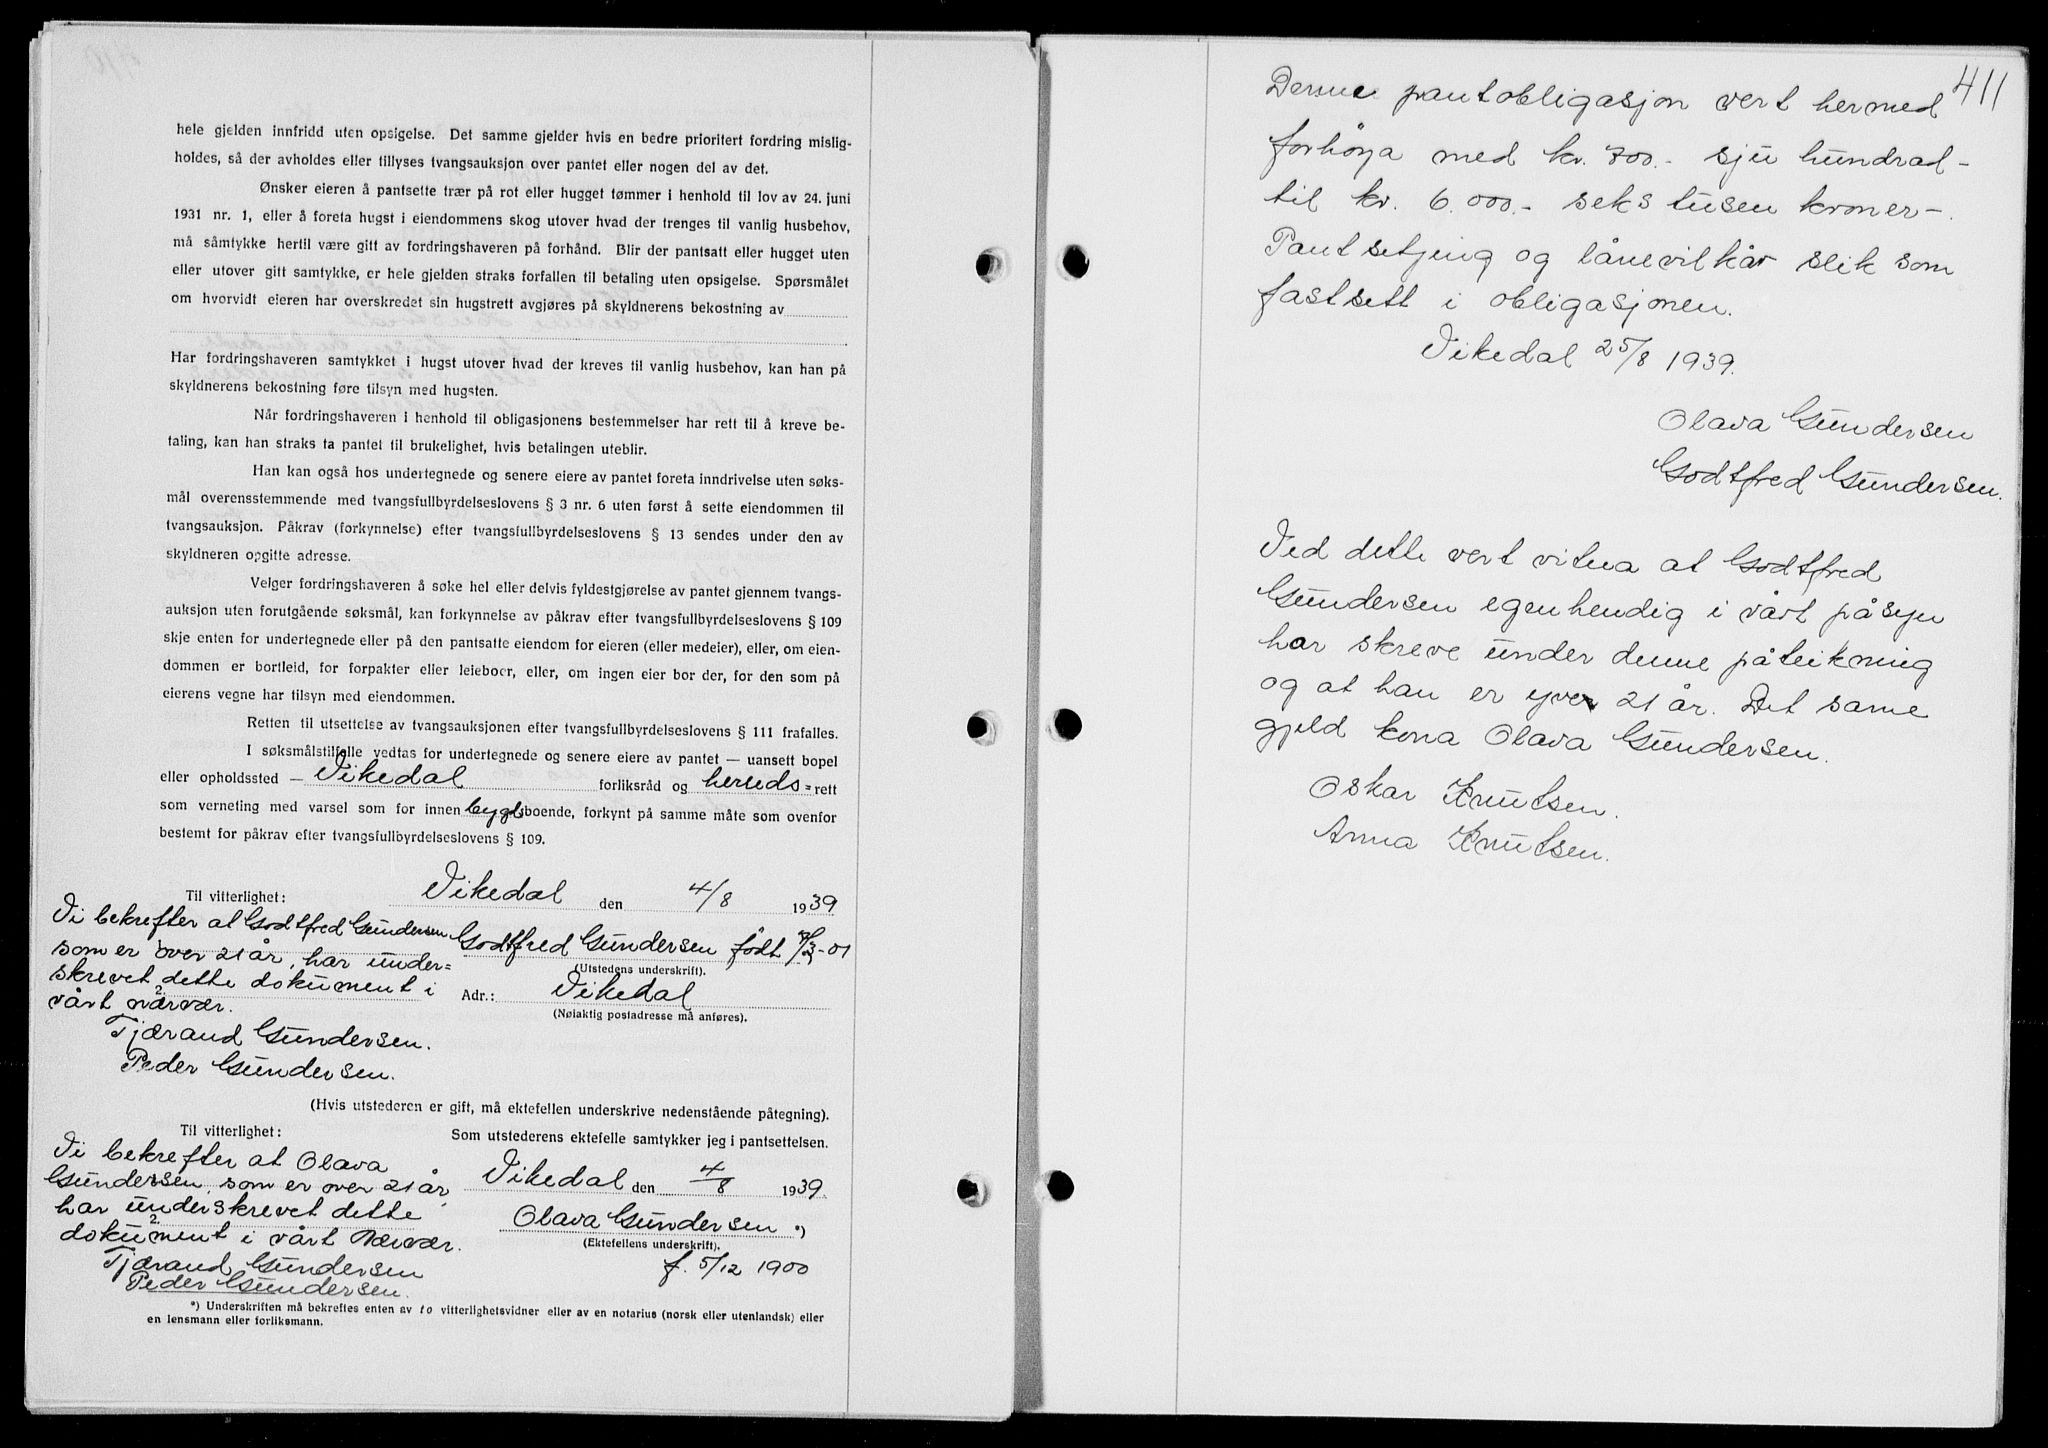 hele gjelden innfridd uten opsigelse. Det samme gjelder hvis en bedre prioritert fordring mislig-
holdes, så der avholdes eller tillyses tvangsauksjon over pantet eller nogen del av det.
Ønsker eieren å pantsette trær på rot eller hugget tømmer i henhold til lov av 24. juni
1931 nr. 1, eller å foreta hugst i eiendommens skog utover hvad der trenges til vanlig husbehov,
må såmtykke hertil være gitt av fordringshaveren på forhånd. Blir der pantsatt eller hugget uten
eller utover gitt samtykke, er hele gjelden straks forfallen til betaling uten opsigelse. Spørsmålet
om hvorvidt eieren har overskredet sin hugstrett avgjøres på skyldnerens bekostning av
Har fordringshaveren samtykket i hugst utover hvad der kreves til vanlig husbehov, kan han på
skyldnerens bekostning føre tilsyn med hugsten.
Når fordringshaveren i henhold til obligasjonens bestemmelser har rett til å kreve be-
taling, kan han straks ta pantet til brukelighet, hvis betalingen uteblir.
Han kan også hos undertegnede og senere eiere av pantet foreta inndrivelse uten søks-
mål overensstemmende med tvangsfullbyrdelseslovens § 3 nr. 6 uten først å sette eiendommen til
tvangsauksjon. Påkrav (forkynnelse) efter tvangsfullbyrdelseslovens § 13 sendes under den av
skyldneren opgitte adresse.
Velger fordringshaveren å søke hel eller delvis fyldestgjørelse av pantet gjennem tvangs-
auksjon uten forutgående søksmål, kan forkynnelse av påkrav efter tvangsfullbyrdelseslovens § 109
skje enten for undertegnede eller på den pantsatte eiendom for eieren (eller medeier), eller, om eien-
dommen er bortleid, for forpakter eller leieboer, eller, om ingen eier bor der, for den som på
eierens vegne har tilsyn med eiendommen.
Retten til utsettelse av tvangsauksjonen efter tvangsfullbyrdelseslovens § 111 frafalles.
I søksmålstilfelle vedtas for undertegnede og senere eiere av pantet — uansett bopel
eller opholdssted — Vikedal forliksråd og herreds=rett
som verneting med varsel som for innenbygdsboende, forkynt på samme måte som ovenfor
bestemt for påkrav efter tvangsfullbyrdelseslovens § 109.
Til vitterlighet: Vikedal den 4/8 1939
Vi bekrefter at Godtfred Gundersen
som er over 21 år, har under=
skrevet dette dokument i
vårt nærvær.
Tjærand Gundersen.
Peder Gundersen.
Godtfred Gundersen født -01
(Utstedens underskrift).
Adr.: Vikedal
(Nøiaktig postadresse må anføres).
(Hvis utstederen er gift, må ektefellen underskrive nedenstående påtegning).
Til vitterlighet: Som utstederens ektefelle samtykker jeg i pantsettelsen.
Vi bekrefter at Olava
Gundersen, som er over 21 år,
har underskrevet dette
dokument i vårt nærvær.
Tjærand Gundersen
Peder Gundersen.
Vikedal den 4/8 1939.
Olava Gundersen *)
(Ektefellens underskrift).
f. 5/12 1900
*) Underskriften må bekreftes enten av to vitterlighetsvidner eller av en notarius (norsk eller utenlandsk) eller
en lensmann eller forliksmann.
411
Denne pantobligasjon vert hermed
forhöya med kr. 700.- sju hundrad-
til kr. 6.000.- seks tusen kroner-.
Pantsetjing og lånevilkår slik som
fastsett i obligasjonen.
Vikedal 25/8 1939.
Olava Gundersen
Godtfred Gundersen.
Ved dette vert vitna at Godtfred
Gundersen egenhendig i vårt påsyn
har skreve under denne påteikning
og at han er yver 21 år. Det same
gjeld kona Olava Gundersen.
Oskar Knutsen.
Anna Knutsen.